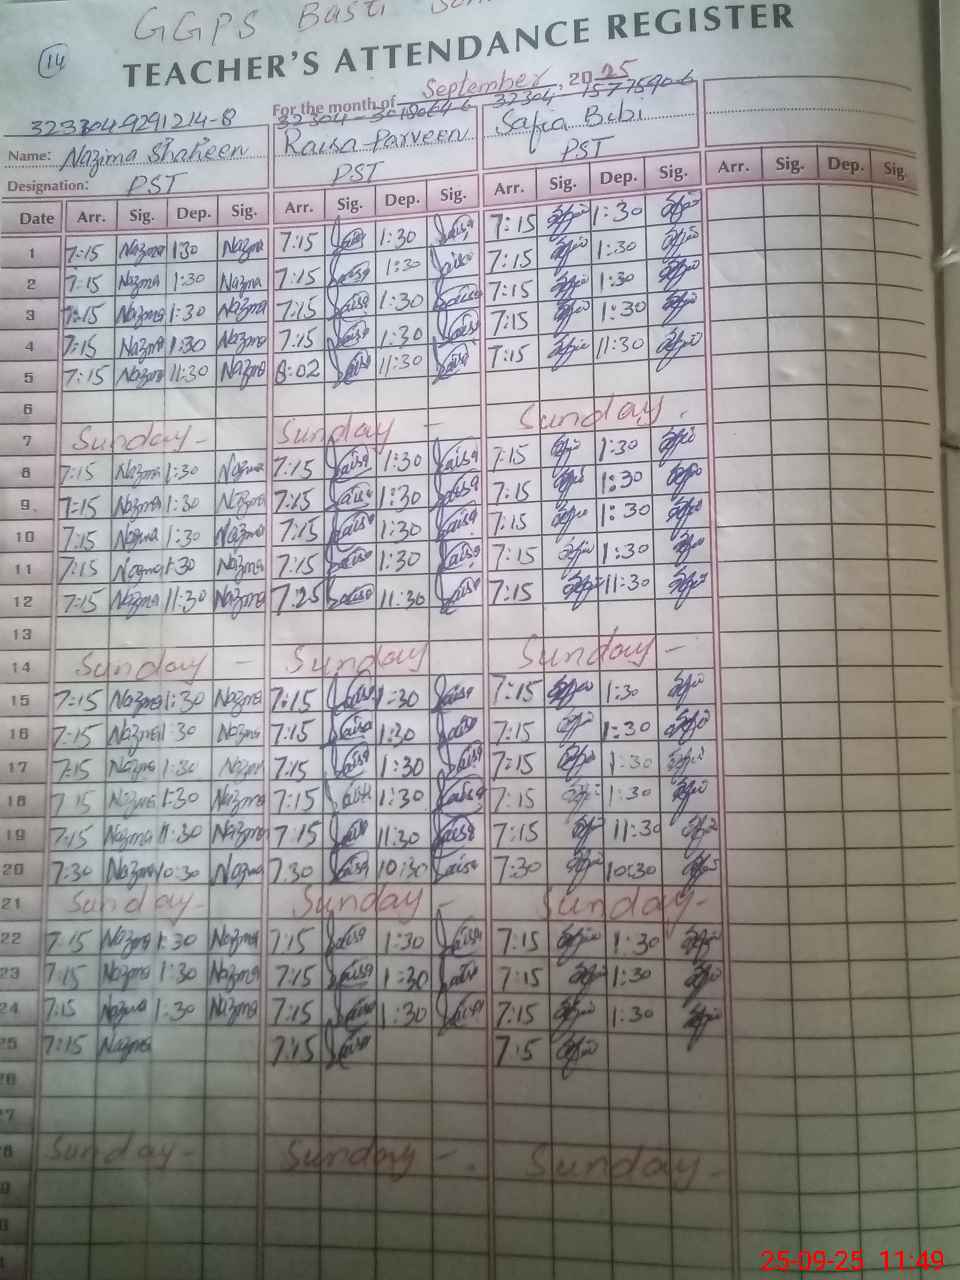 GGPS Basti
14
TEACHER'S ATTENDANCE REGISTER
For the month of September, 2025
323304-9291214-8 32304-3018064-6 32304 1577590-6
Name: Nazima Shaheen Raisa Parveen Safia Bibi
Designation: PST PST PST
Date Arr. Sig. Dep. Sig. Arr. Sig. Dep. Sig. Arr. Sig. Dep. Sig. Arr. Sig. Dep. Sig.
1 7:15 Nazma 1:30 Nazma 7:15 Raisa 1:30 Raisa 7:15 1:30
2 7:15 Nazma 1:30 Nazma 7:15 Raisa 1:30 Raisa 7:15 1:30
3 7:15 Nazma 1:30 Nazma 7:15 Raisa 1:30 Raisa 7:15 1:30
4 7:15 Nazma 1:30 Nazma 7:15 Raisa 1:30 Raisa 7:15 1:30
5 7:15 Nazma 11:30 Nazma 8:02 Raisa 11:30 Raisa 7:15 11:30
6
7 Sunday - Sunday - Sunday.
8 7:15 Nazma 1:30 Nazma 7:15 Raisa 1:30 Raisa 7:15 1:30
9 7:15 Nazma 1:30 Nazma 7:15 Raisa 1:30 Raisa 7:15 1:30
10 7:15 Nazma 1:30 Nazma 7:15 Raisa 1:30 Raisa 7:15 1:30
11 7:15 Nazma 1:30 Nazma 7:15 Raisa 1:30 Raisa 7:15 1:30
12 7:15 Nazma 11:30 Nazma 7:25 Raisa 11:30 Raisa 7:15 11:30
13
14 Sunday - Sunday Sunday -
15 7:15 Nazma 1:30 Nazma 7:15 Raisa 1:30 Raisa 7:15 1:30
16 7:15 Nazma 1:30 Nazma 7:15 Raisa 1:30 Raisa 7:15 1:30
17 7:15 Nazma 1:30 Nazma 7:15 Raisa 1:30 Raisa 7:15 1:30
18 7:15 Nazma 1:30 Nazma 7:15 Raisa 1:30 Raisa 7:15 1:30
19 7:15 Nazma 11:30 Nazma 7:15 Raisa 11:30 Raisa 7:15 11:30
20 7:30 Nazma 10:30 Nazma 7:30 Raisa 10:30 Raisa 7:30 10:30
21 Sunday - Sunday - Sunday -
22 7:15 Nazma 1:30 Nazma 7:15 Raisa 1:30 Raisa 7:15 1:30
23 7:15 Nazma 1:30 Nazma 7:15 Raisa 1:30 Raisa 7:15 1:30
24 7:15 Nazma 1:30 Nazma 7:15 Raisa 1:30 Raisa 7:15 1:30
25 7:15 Nazma 7:15 Raisa 7:15
Sunday - Sunday - Sunday -
25-09-25 11:49